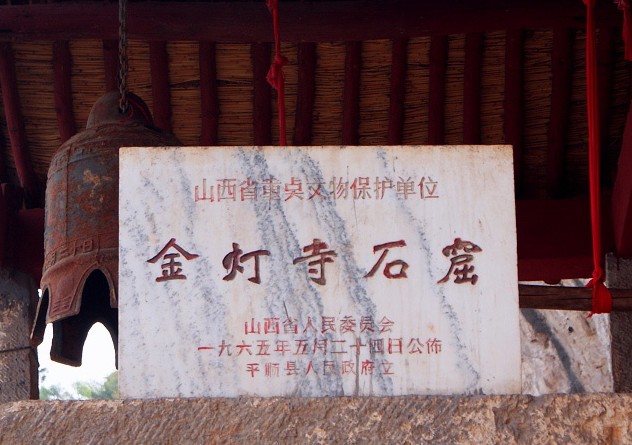 山西省重点文物保护单位
金灯寺石窟
山西省人民委员会
一九六五年五月二十四日公佈
平顺县人民政府立